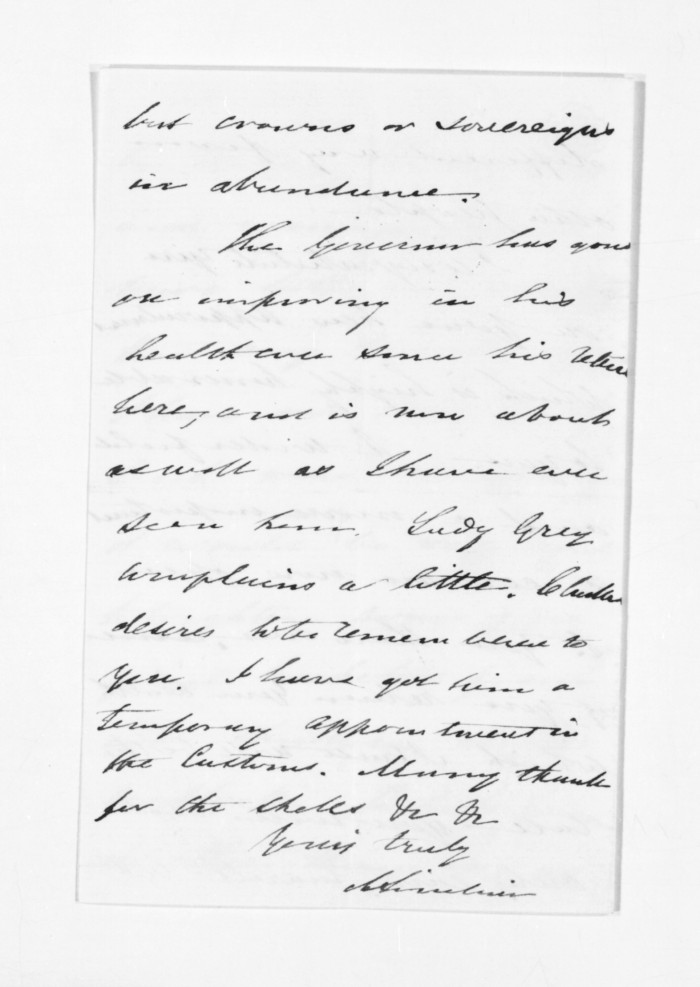 but crowns or sovereigns
in abundance.
The Governor has gone
on improving in his
health ever since his return
here, and is now about
as well as I have ever
seen him. Lady Grey
complains a little.
desires to be remembered to
you. I have got him a
temporary appointment in
the Customs. Many thanks
for the shells &c &c
Yours truly